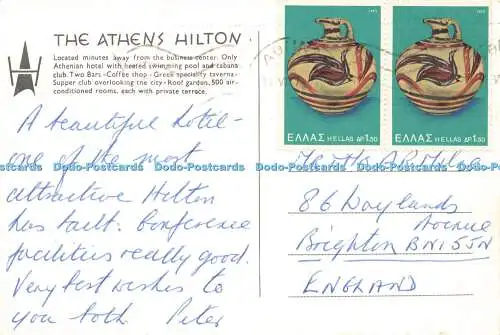 THE ATHENS HILTON
Located minutes away from the business center. Only
Athenian hotel with heated swimming pool and cabana
club. Two Bars - Coffee shop - Greek speciality taverna -
Supper club overlooking the city - Roof garden. 500 air-
conditioned rooms, each with private terrace.
A beautiful hotel -
one of the most
attractive Hilton
has built. Conference
facilities really good.
Very best wishes to
you both. Peter
ΕΛΛΑΣ HELLAS ΔΡ 1.50
ΕΛΛΑΣ HELLAS ΔΡ 1.50
86 Waylands
Avenue
Brighton BN1 5JN
ENGLAND
Dado-Postcards Dado-Postcards Dado-Postcards Dado-Postcards